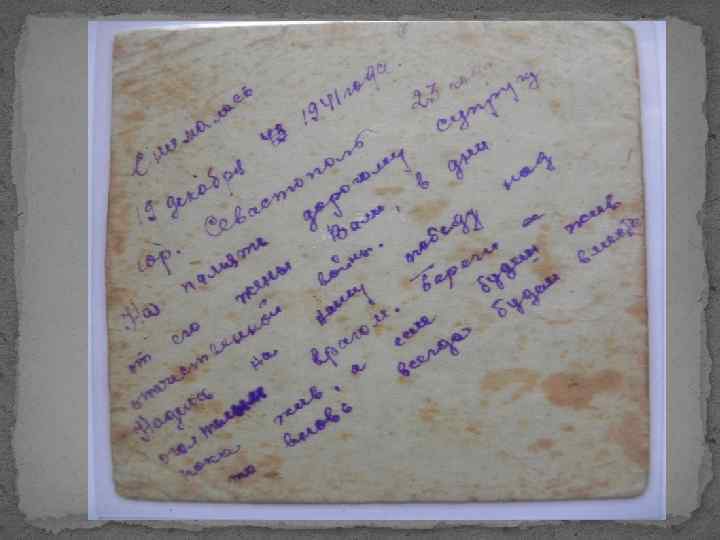 Снималась
19 декабря 1941 года.
гор. Севастополь 23 года
На память дорогому супругу
от его жены Вали, в дни
отечественной войны.
Надеюсь на нашу победу над
врагом. Береги
пока жив, а если будем жив
то вновь всегда будем вместе